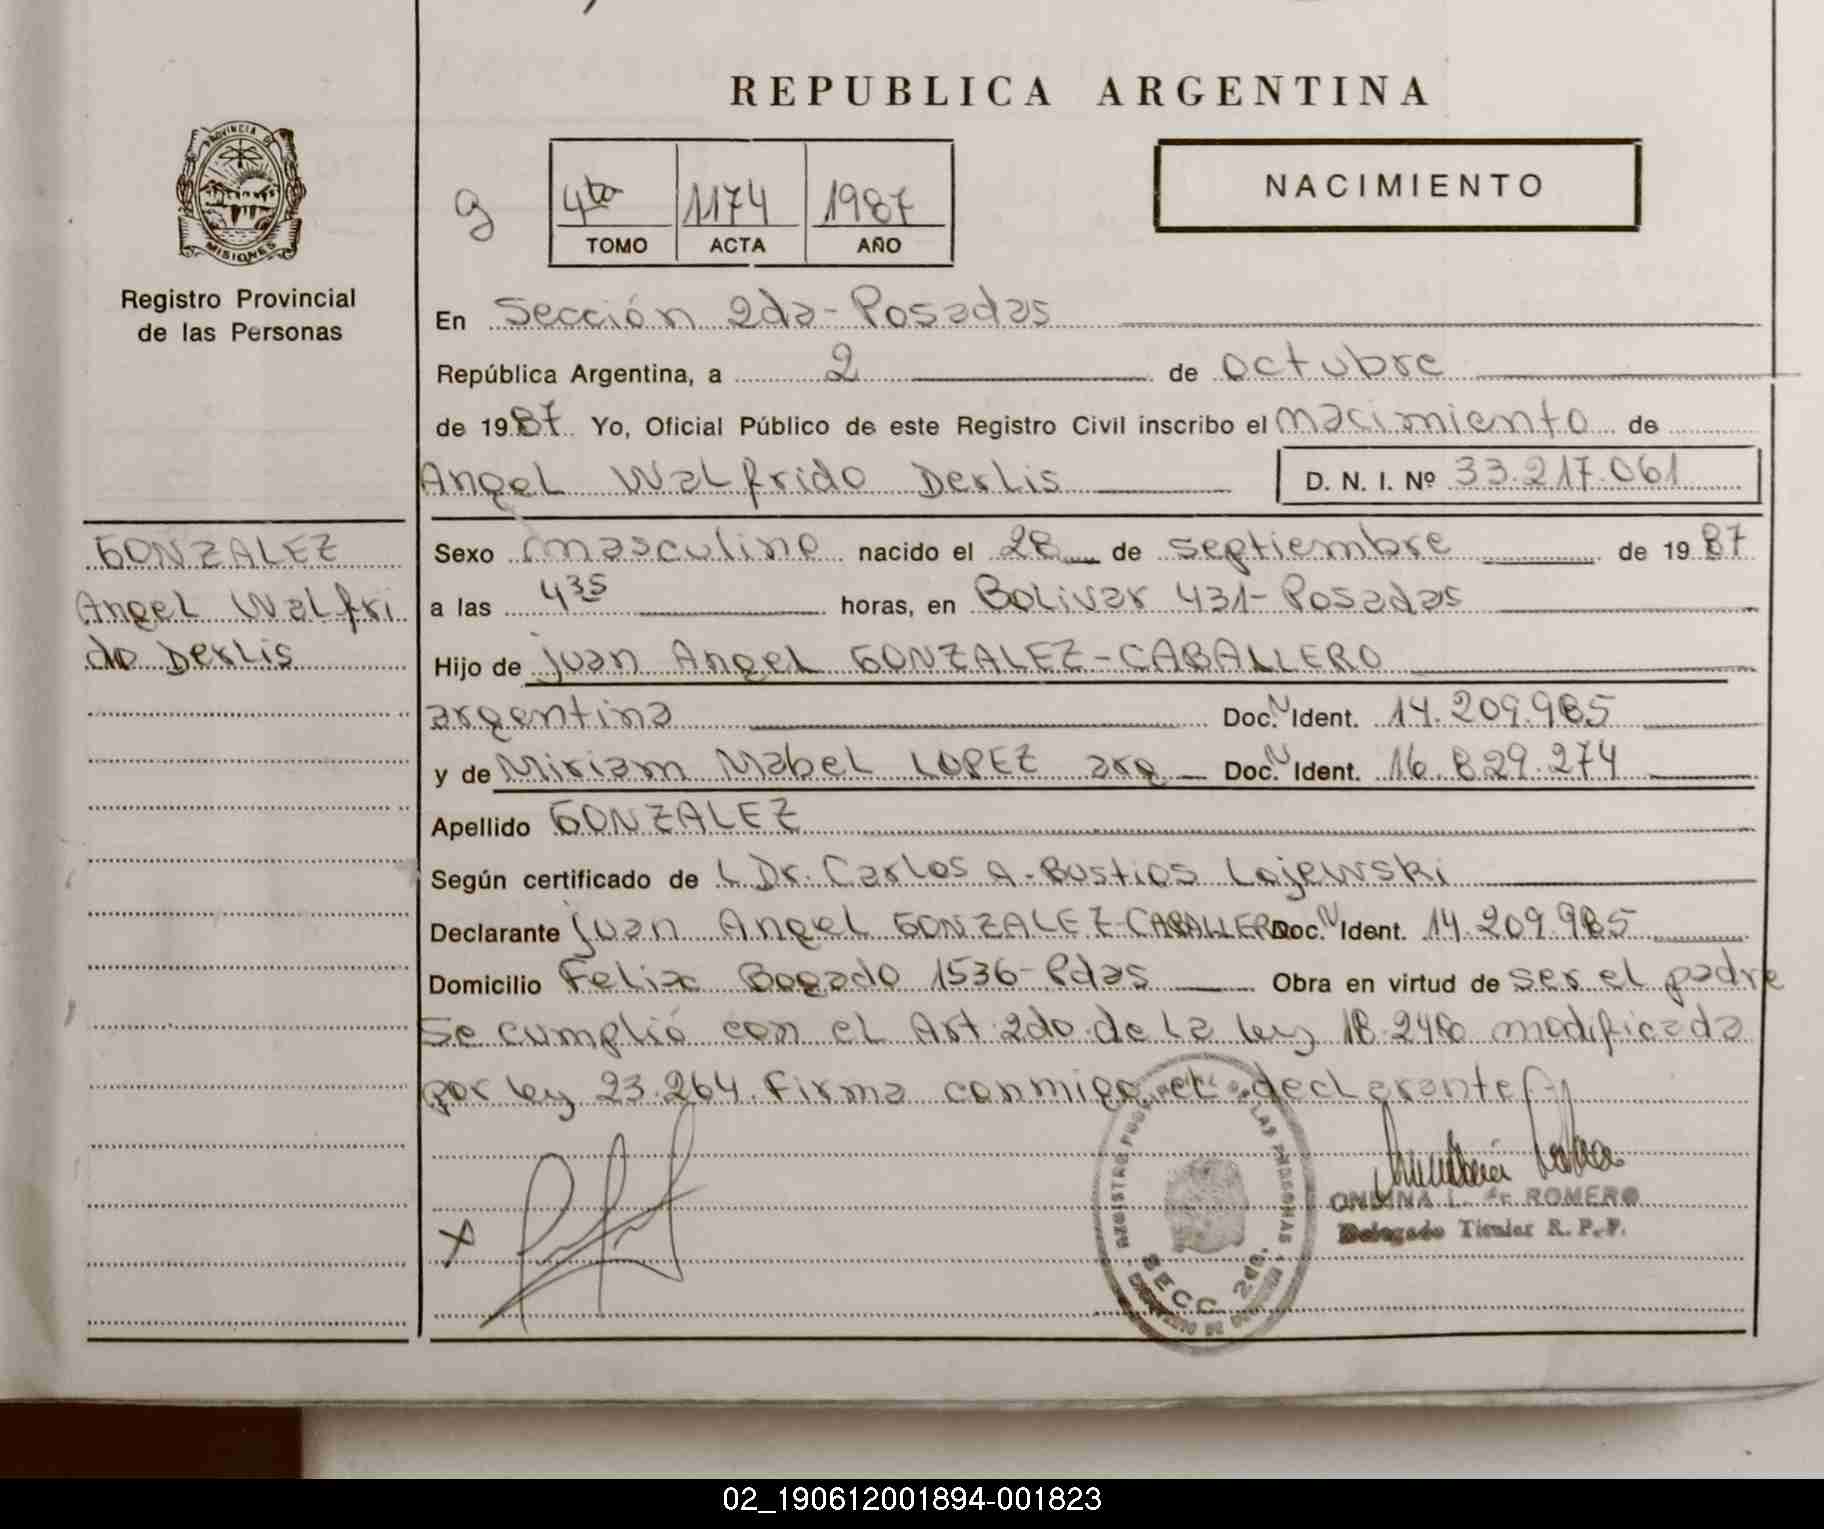 REPUBLICA ARGENTINA
PROVINCIA DE
MISIONES
Registro Provincial
de las Personas
g
4to 1174 1987
TOMO ACTA AÑO
NACIMIENTO
En Sección 2da-Posadas
República Argentina, a 2 de octubre
de 1987 Yo, Oficial Público de este Registro Civil inscribo el nacimiento de
Angel Walfrido Derlis D. N. I. Nº 33.217.061
GONZALEZ
Angel Walfri
do Derlis
Sexo masculino nacido el 28 de septiembre de 1987
a las 4 35 horas, en Bolivar 431-Posadas
Hijo de juan Angel GONZALEZ-CABALLERO
argentina Doc. N Ident. 14.209.985
y de Miriam Mabel LOPEZ arg Doc. N Ident. 16.829.274
Apellido GONZALEZ
Según certificado de L Dr. Carlos A. Bustios Lajewski
Declarante juan Angel GONZALEZ-CABALLERO Doc. N Ident. 14.209.985
Domicilio Felix Bogado 1536-Pdas Obra en virtud de ser el padre
Se cumplió con el Art 2do de la ley 18.248 modificada
por ley 23.264. Firma conmigo el declarante
X
SECC. 2da.
ONDINA L. de ROMERO
Delegado Titular R. P. P.
02_190612001894-001823